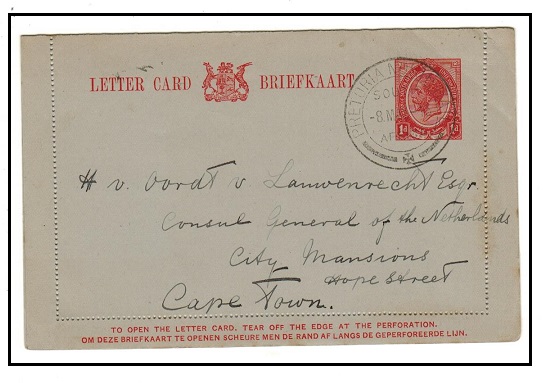 LETTER CARD BRIEFKAART
PRETORIA
SOU
-8 M
AF
1d 1d
H v. Oordt v Lauwenrecht Esqr.
Consul General of the Netherlands
City Mansions
Hope Street
Cape Town.
TO OPEN THE LETTER CARD, TEAR OFF THE EDGE AT THE PERFORATION.
OM DEZE BRIEFKAART TE OPENEN SCHEURE MEN DE RAND AF LANGS DE GEPERFOREERDE LIJN.